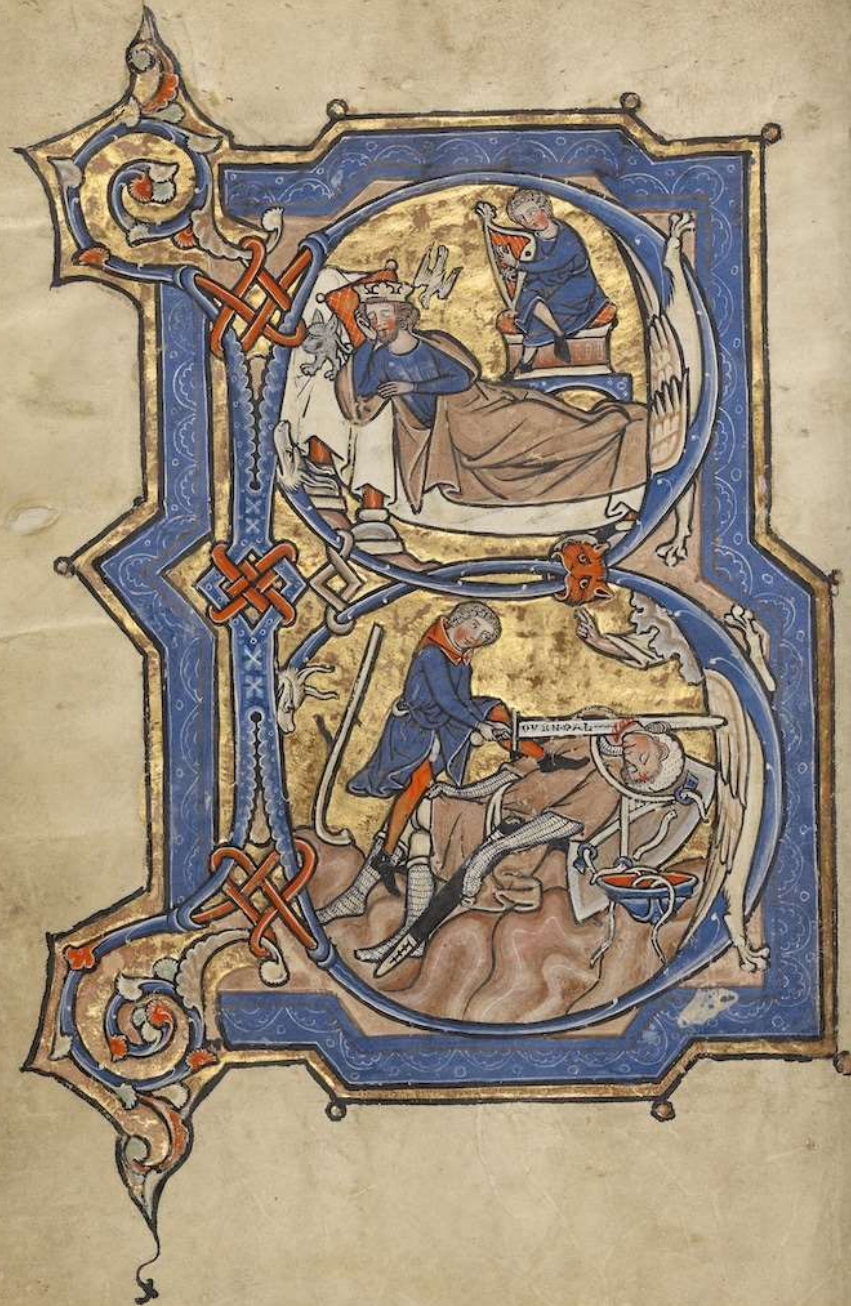 B
DVRNDAL